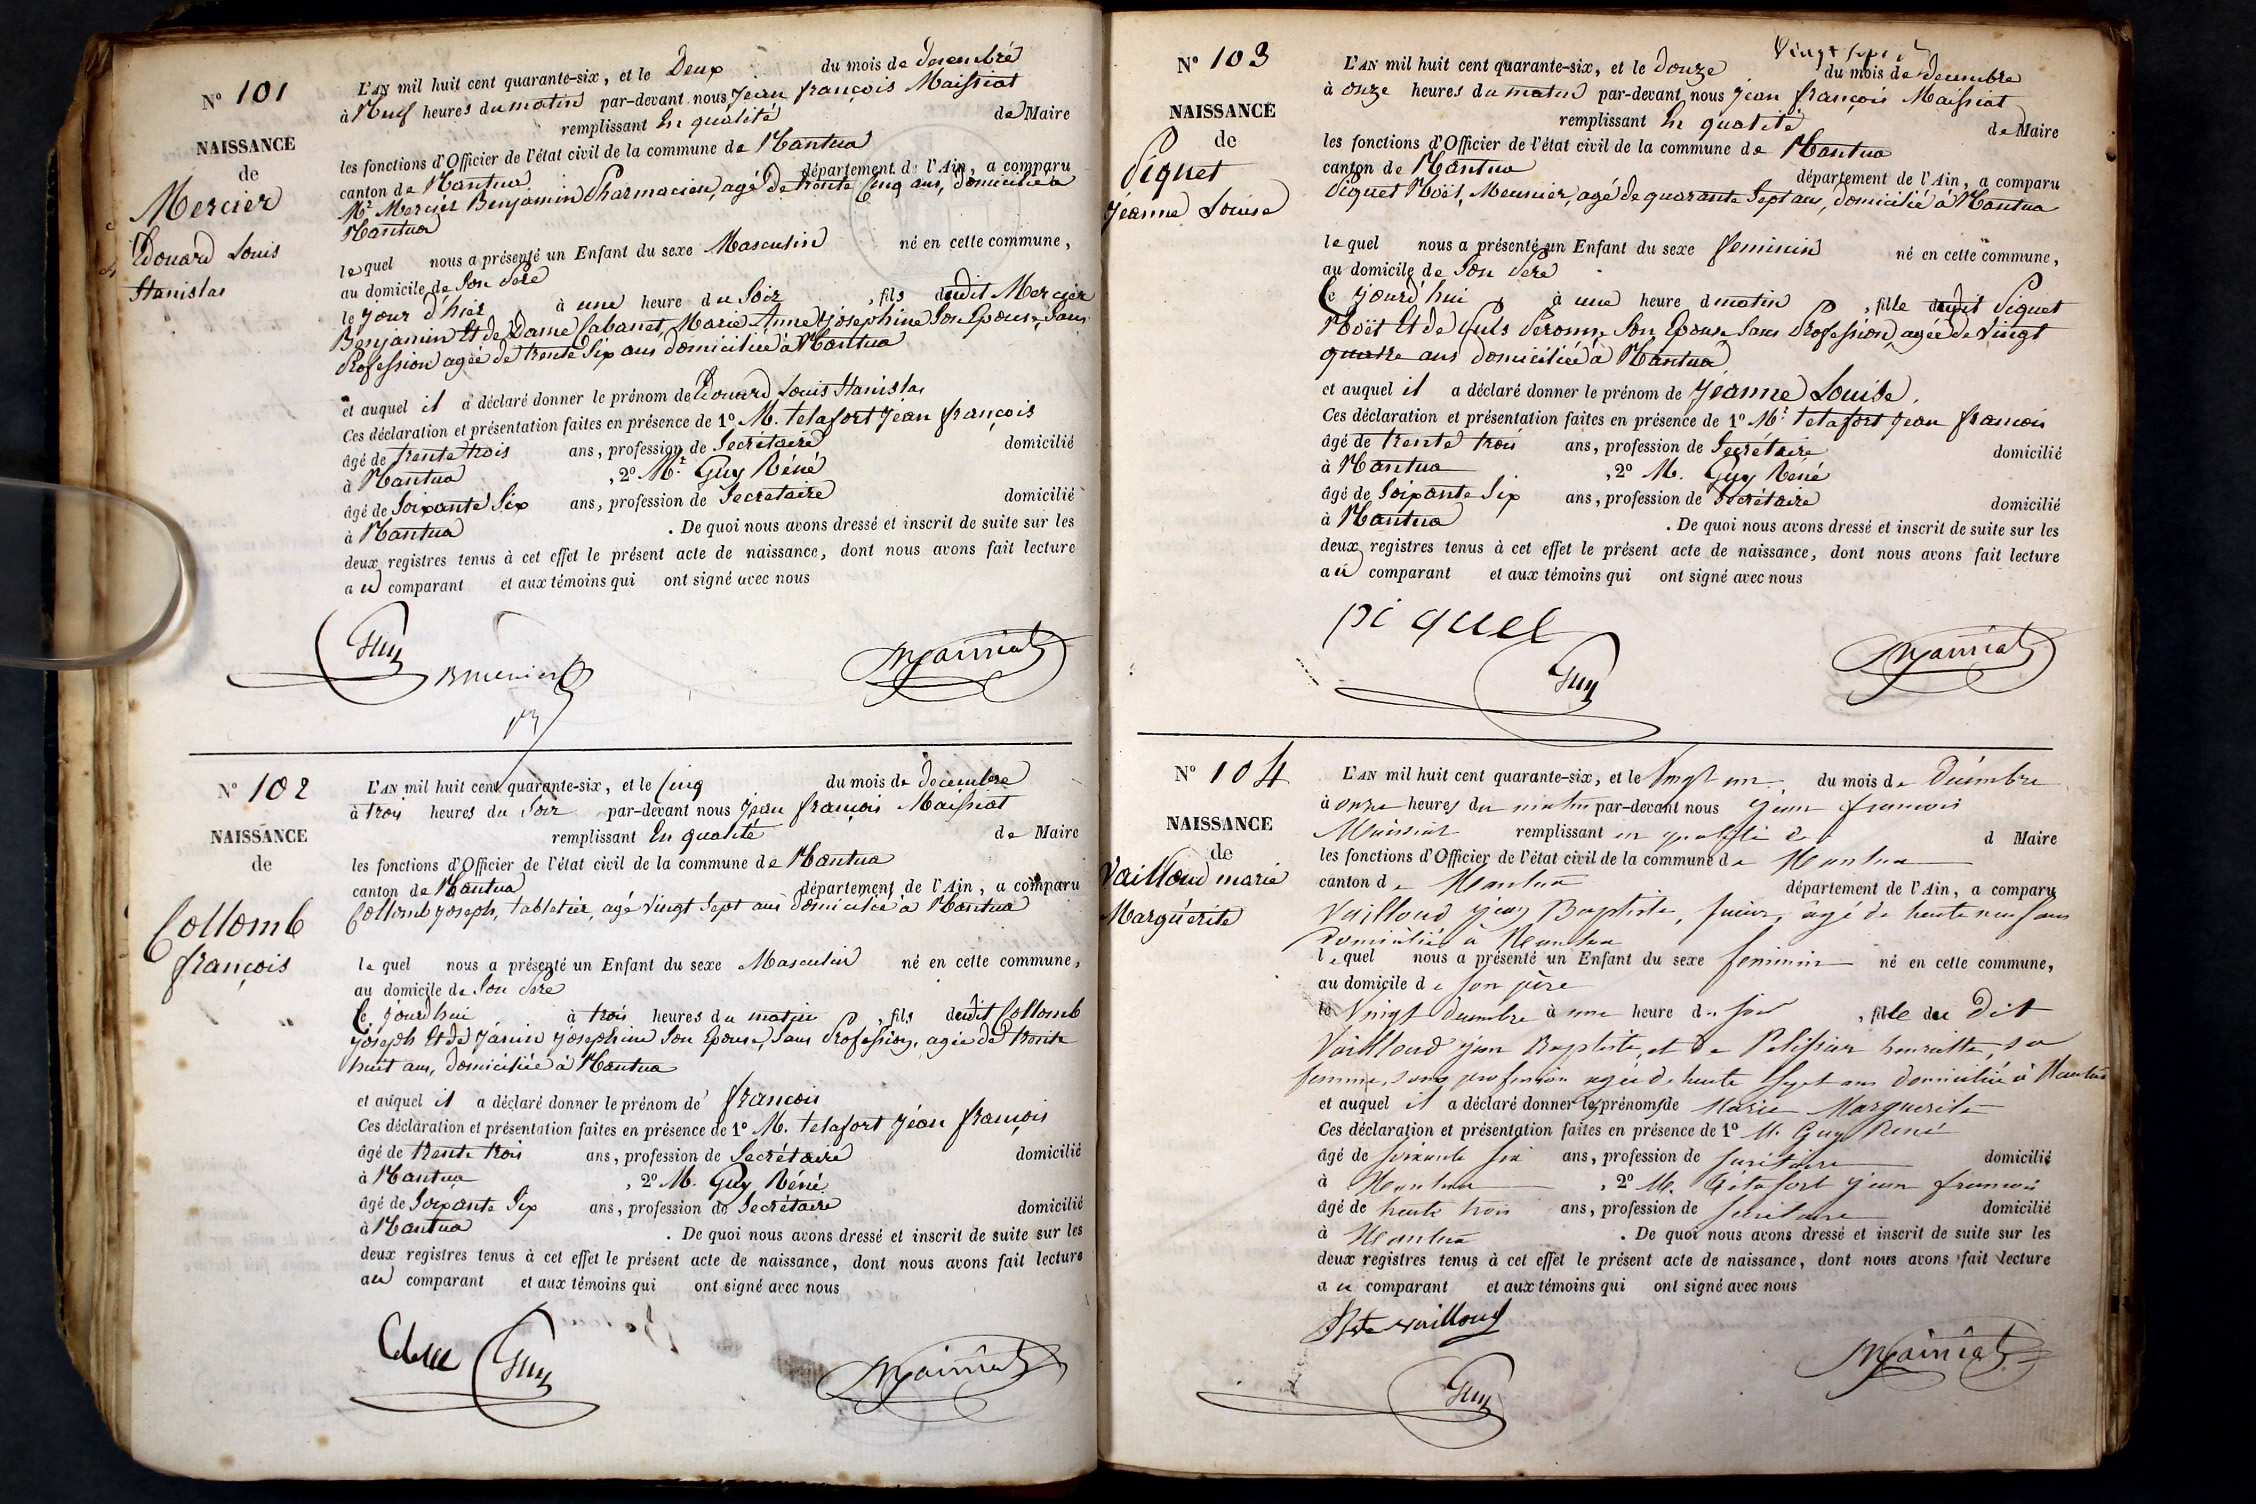 N° 101
NAISSANCE
de
Mercier
Edouard Louis
Stanislas
L'AN mil huit cent quarante-six, et le Deux du mois de decembre
à Neuf heures du matin par-devant nous Jean françois Maissiat
remplissant En qualité de Maire
les fonctions d'Officier de l'état civil de la commune de Nantua
canton de Nantua département de l'Ain, a comparu
Mr Mercier Benjamin Pharmacien, agé De trente Cinq ans, domicilié à
Nantua
lequel nous a présenté un Enfant du sexe Masculin né en cette commune,
au domicile de Son Père
le jour d'hier à une heure du Soir, fils dudit Mercier
Benjamin Et de Dame Cabanet, Marie Anne Josephine Son Epouse, Sans
Profession agée de trente Six ans domiciliée à Nantua
et auquel il a déclaré donner le prénom de Edouard Louis Stanislas
Ces déclaration et présentation faites en présence de 1° M. telafort Jean françois
âgé de trente trois ans, profession de Secrétaire domicilié
à Nantua, 2° Mr Guy Réné
âgé de Soixante Six ans, profession de Secretaire domicilié
à Nantua. De quoi nous avons dressé et inscrit de suite sur les
deux registres tenus à cet effet le présent acte de naissance, dont nous avons fait lecture
au comparant et aux témoins qui ont signé avec nous
Guy
Maissiat
N° 102
NAISSANCE
de
Collomb
françois
L'AN mil huit cent quarante-six, et le Cinq du mois de decembre
à trois heures du Soir par-devant nous Jean françois Maissiat
remplissant En qualité de Maire
les fonctions d'Officier de l'état civil de la commune de Nantua
canton de Nantua département de l'Ain, a comparu
Collomb Joseph, tabletier, agé Vingt Sept ans domicilié à Nantua
lequel nous a présenté un Enfant du sexe Masculin né en cette commune,
au domicile de Son Père
Ce jourd'hui à trois heures du matin, fils dudit Collomb
Joseph Et de Janin Josephine Son Epouse, Sans Profession, agée de trente
huit ans, domiciliée à Nantua
et auquel il a déclaré donner le prénom de françois
Ces déclaration et présentation faites en présence de 1° M. telafort Jean françois
âgé de trente trois ans, profession de Secrétaire domicilié
à Nantua, 2° M. Guy Réné
âgé de Soixante Six ans, profession de Secrétaire domicilié
à Nantua. De quoi nous avons dressé et inscrit de suite sur les
deux registres tenus à cet effet le présent acte de naissance, dont nous avons fait lecture
au comparant et aux témoins qui ont signé avec nous
Guy
Maissiat
N° 103
NAISSANCE
de
Piquet
Jeanne Louise
Vingt sept
L'AN mil huit cent quarante-six, et le douze du mois de decembre
à onze heures du matin par-devant nous Jean françois Maissiat
remplissant En qualité de Maire
les fonctions d'Officier de l'état civil de la commune de Nantua
canton de Nantua département de l'Ain, a comparu
Piquet Noël, Meunier, agé de quarante Sept ans, domicilié à Nantua
lequel nous a présenté un Enfant du sexe feminin né en cette commune,
au domicile de Son Père
Ce jourd'hui, à une heure d matin, fille dudit Piquet
Noël Et de Puls Peronne Son Epouse Sans Profession, agée de Vingt
quatre ans domiciliée à Nantua
et auquel il a déclaré donner le prénom de Jeanne Louise.
Ces déclaration et présentation faites en présence de 1° Mr telafort Jean francois
âgé de trente trois ans, profession de Secrétaire domicilié
à Nantua, 2° M. Guy Réné
âgé de Soixante Six ans, profession de Secrétaire domicilié
à Nantua. De quoi nous avons dressé et inscrit de suite sur les
deux registres tenus à cet effet le présent acte de naissance, dont nous avons fait lecture
au comparant et aux témoins qui ont signé avec nous
piquet
Guy
Maissiat
N° 104
NAISSANCE
de
Vailloud marie
Marguerite
L'AN mil huit cent quarante-six, et le Vingt un du mois de Décembre
à onze heures du matin par-devant nous Jean francois
Maissiat remplissant en qualité de d Maire
les fonctions d'Officier de l'état civil de la commune de Nantua
canton de Nantua département de l'Ain, a comparu
Vailloud Jean Baptiste, agé de trente neuf ans
Domicilié à Nantua
lequel nous a présenté un Enfant du sexe feminin né en cette commune,
au domicile de son père
le Vingt Decembre à une heure du soir, fille du Dit
Vailloud Jean Baptiste, et de Pelissier henriette, sa
femme, sans profession agée de trente Sept ans Domiciliée à Nantua
et auquel il a déclaré donner les prénoms de Marie Marguerite
Ces déclaration et présentation faites en présence de 1° M. Guy René
âgé de soixante six ans, profession de Secrétaire domicilié
à Nantua, 2° M. télafort Jean francois
âgé de trente trois ans, profession de Secretaire domicilié
à Nantua. De quoi nous avons dressé et inscrit de suite sur les
deux registres tenus à cet effet le présent acte de naissance, dont nous avons fait lecture
au comparant et aux témoins qui ont signé avec nous
vailloud
Guy
Maissiat